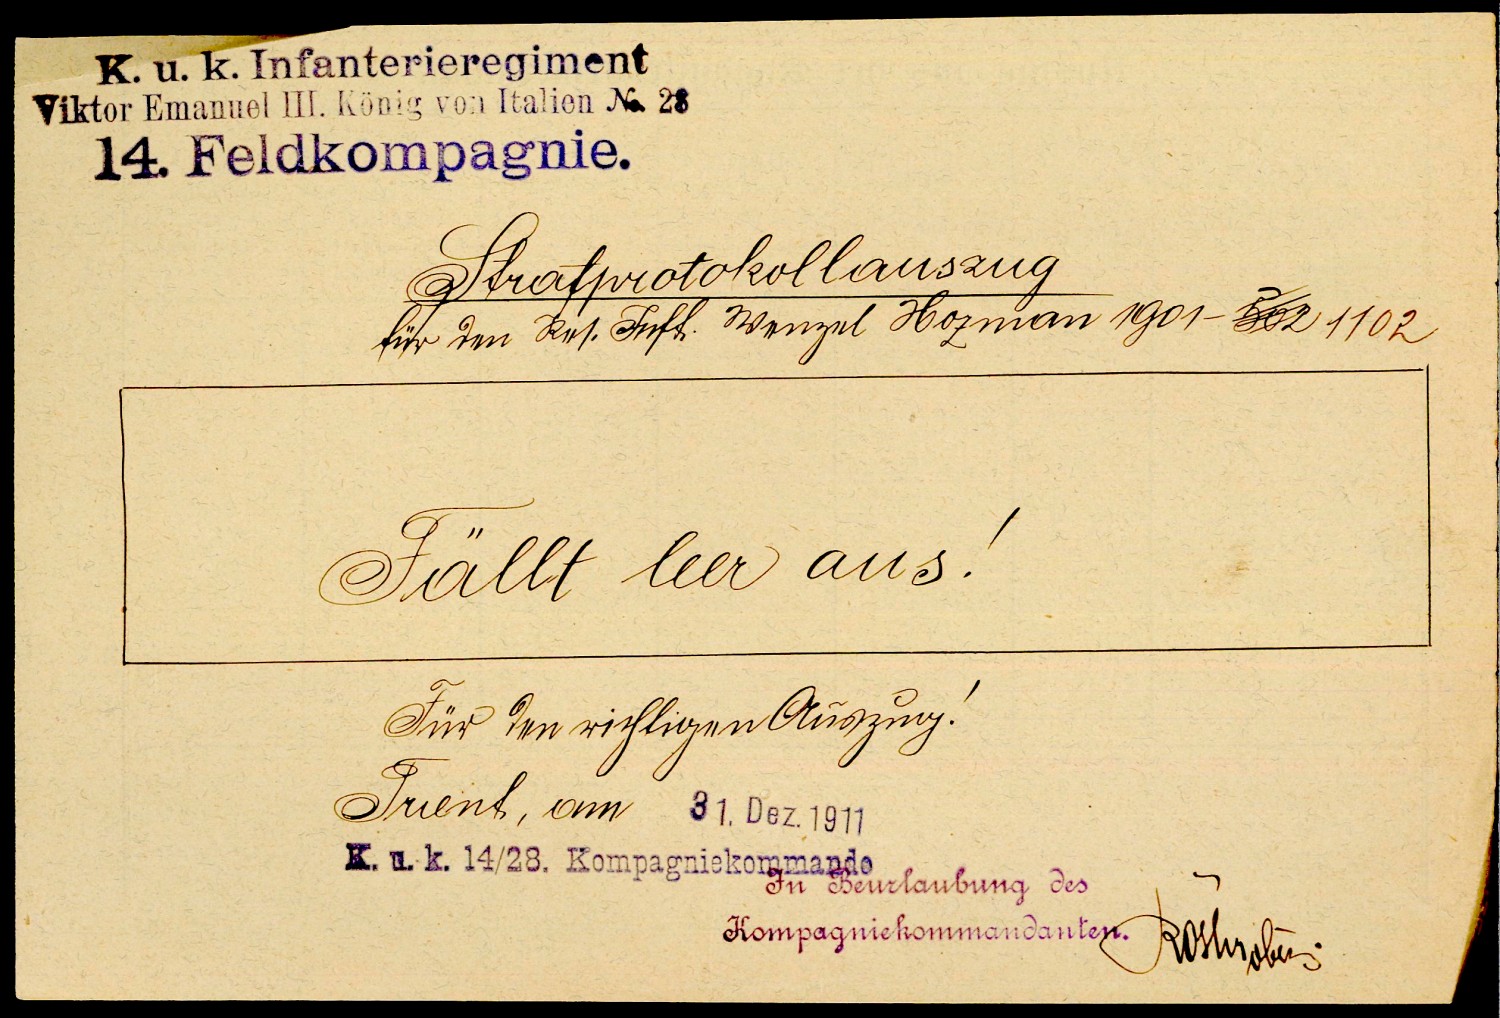 K. u. k. Infanterieregiment
Viktor Emanuel III. König von Italien No. 28
14. Feldkompagnie.
Strafprotokollauszug
für den Res. Inft. Wenzel Hozman 1901 - 1102
Fällt leer aus!
Für den richtigen Auszug!
Trient, am 31. Dez. 1911
K. u. k. 14/28. Kompagniekommando
In Beurlaubung des
Kompagniekommandanten.